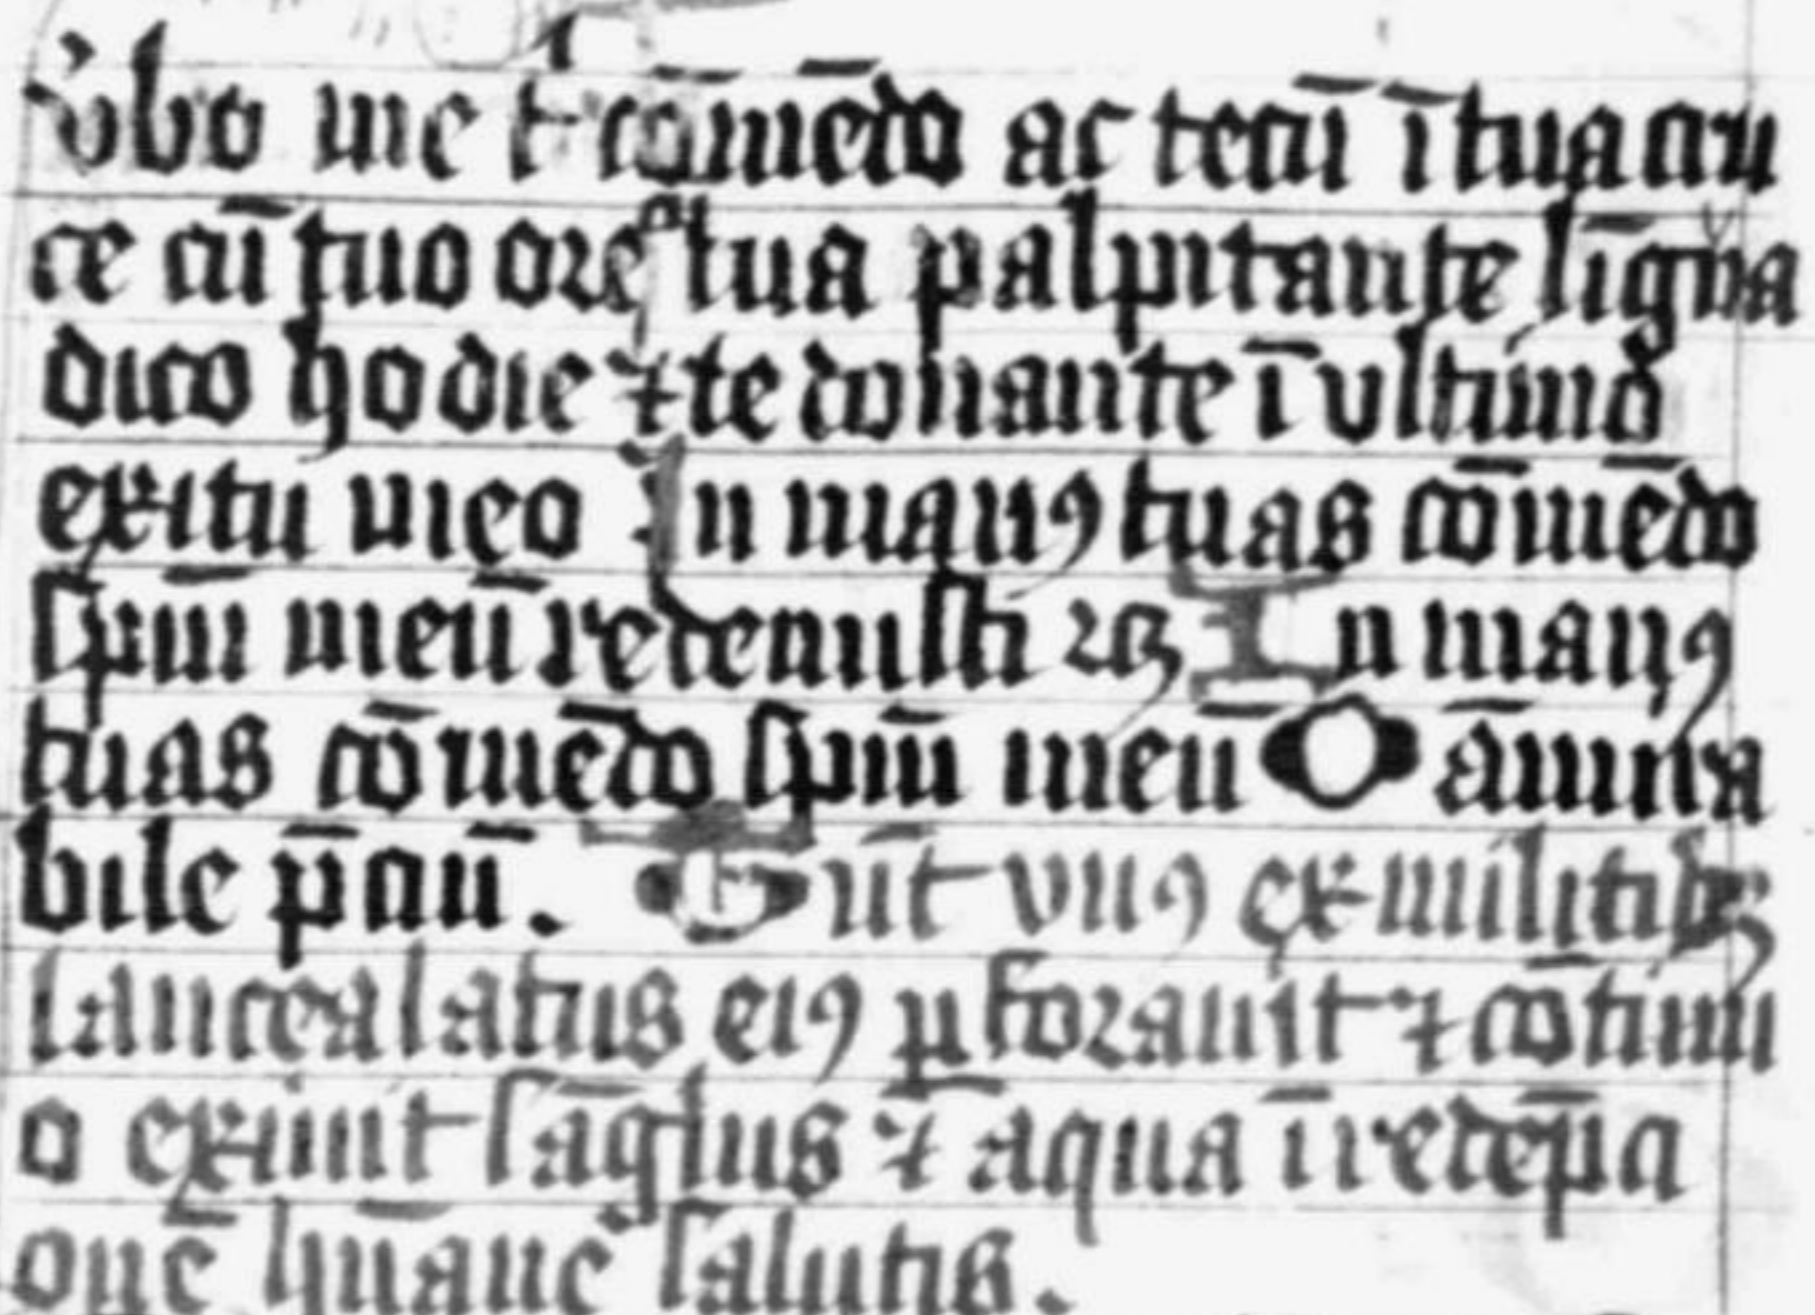 vobo me ⁊ cōmēdo ac tecū ī tua cru
ce cū tuo ore ⁊ tua palpitante līgua
dico hodie ⁊ te donante ī vltimo
exitu meo In manꝰ tuas cōmēdo
sp̄m meū redemisti ⁊cꝫ In manꝰ
tuas cōmēdo sp̄m meū O āmira
bile p̄ciū. Un̄t vnꝰ ex militibꝫ
lancea latus eiꝰ ꝑforauit ⁊ cōtinu
o exiuit sāguis ⁊ aqua ī redēpci
onē hūane salutis.